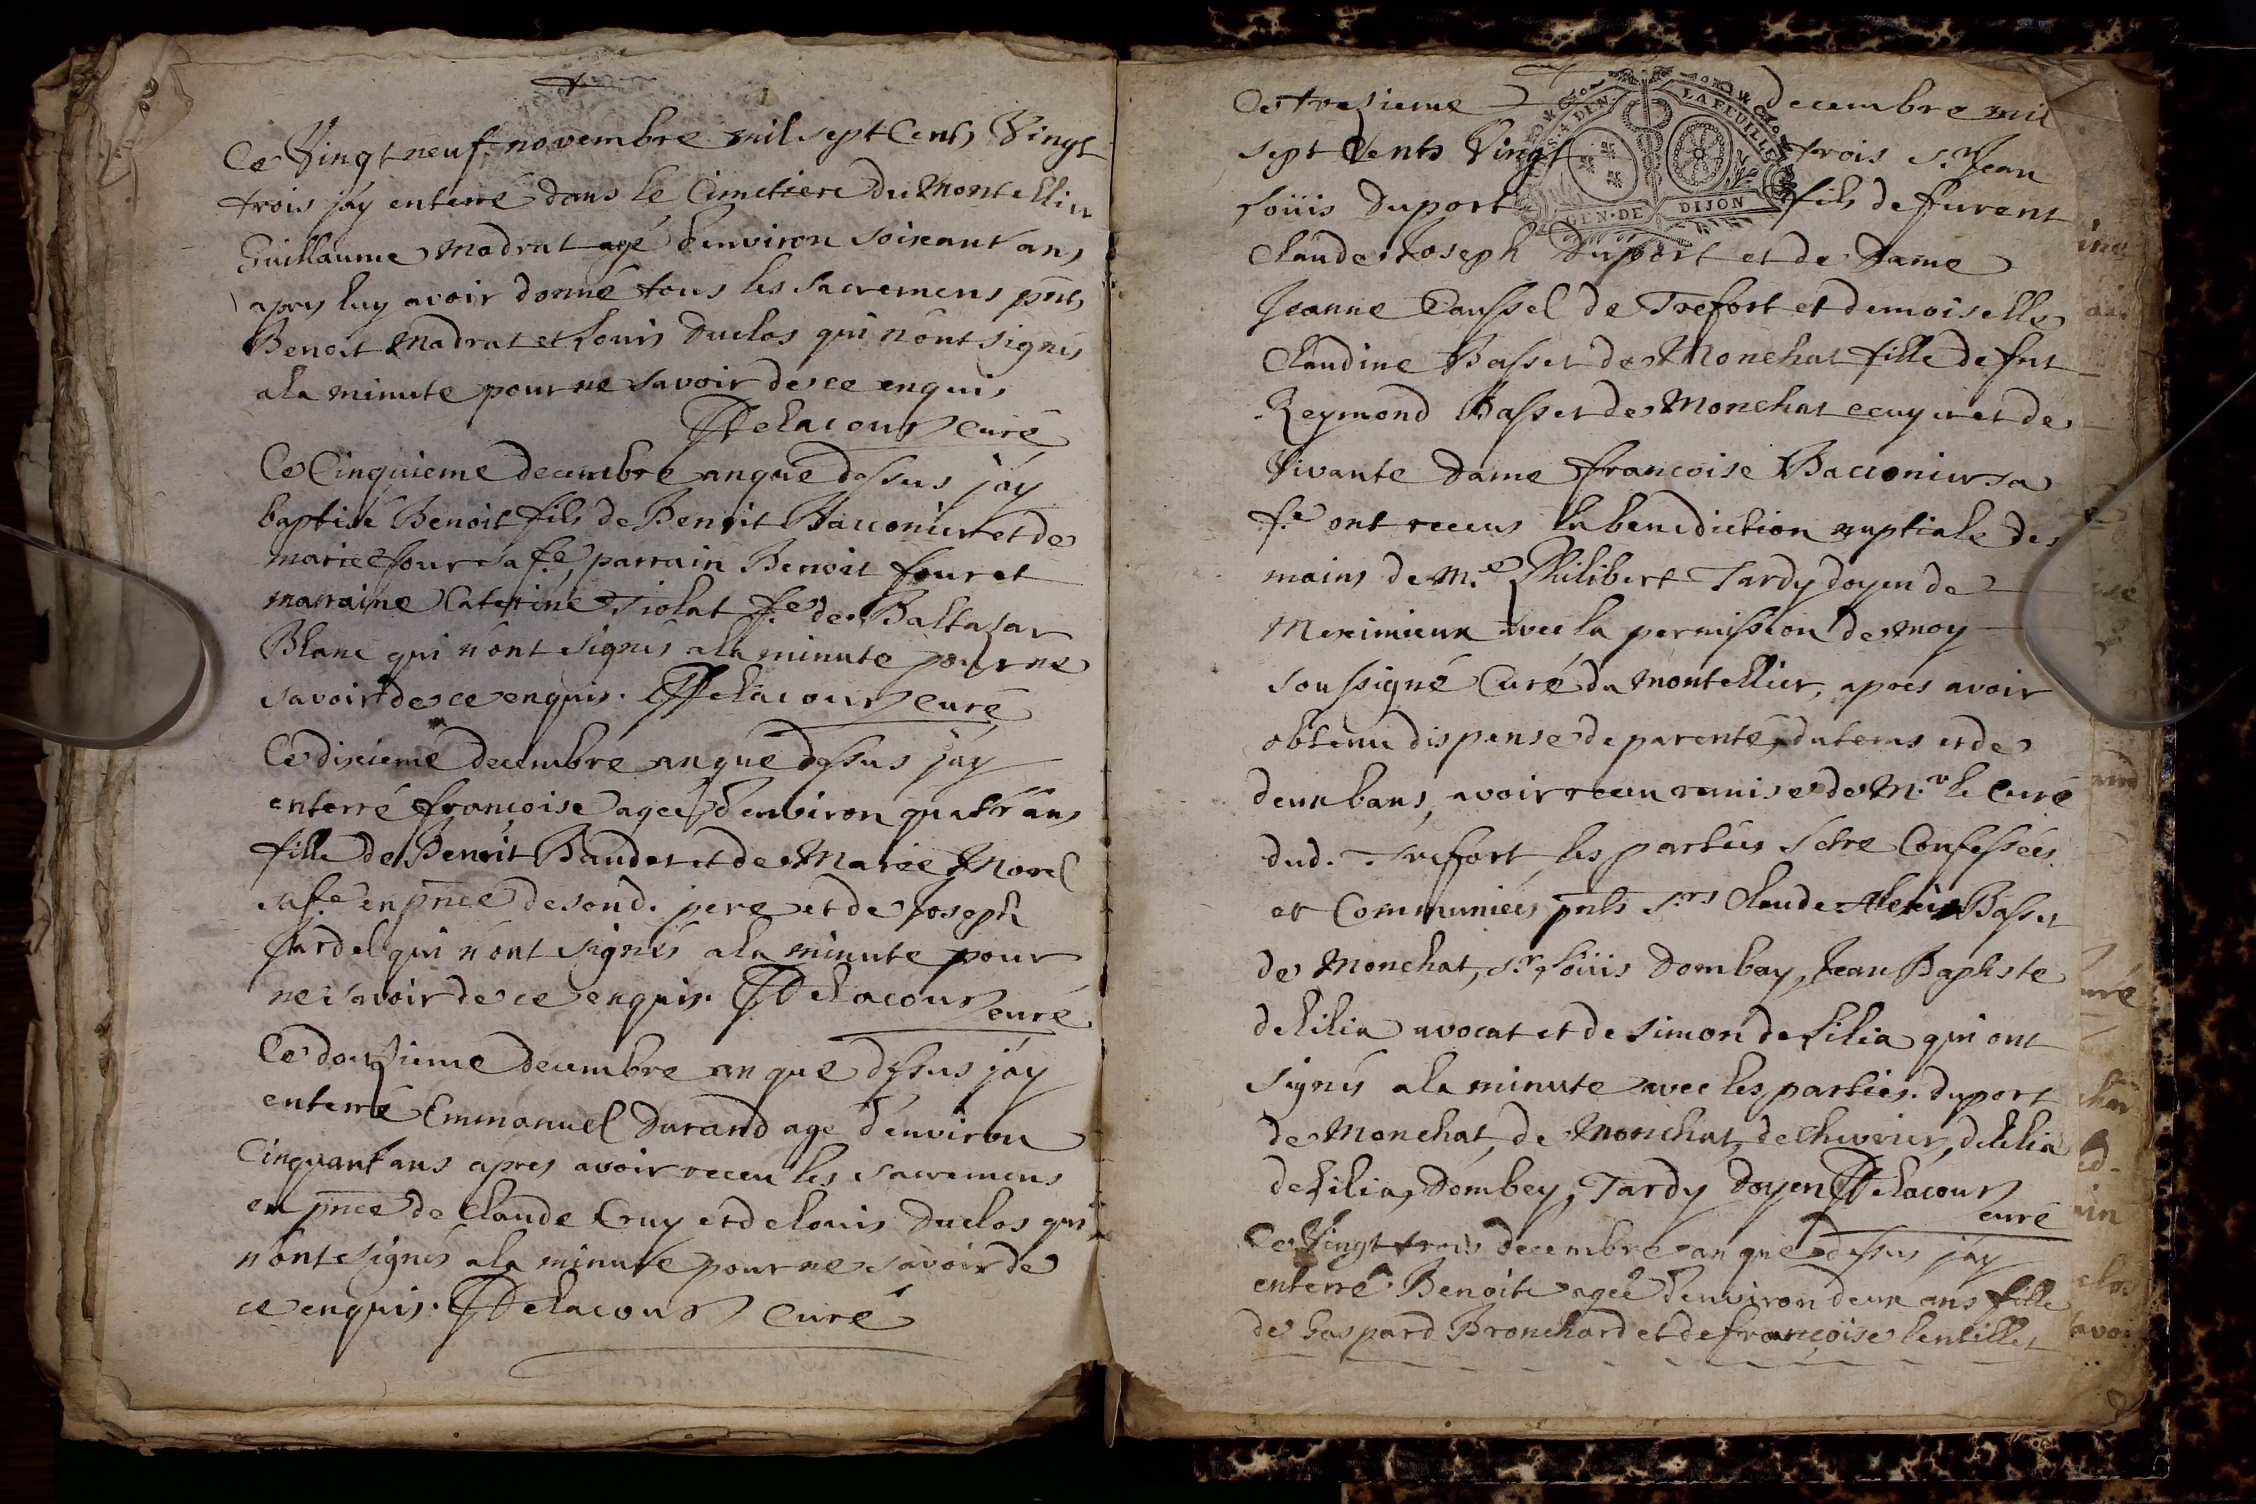 Ce Vingt neuf novembre mil sept Cents Vingt
trois jáy enterré dans le Cimetiere du Montellier
Guillaume Madrat agé d'environ soixant ans
apres luy avoir donné tous les sacremens pnts
Benoit Madrat et Louis Duclos qui n'ont signés
a la minute pour ne savoir de ce enquis
Delacour curé
Ce Cinquieme decembre an que dessus jáy
baptisé Benoit fils de Benoit Bacconier et de
marie four sa fe, parrain Benoit four et
marraine Caterine Tiolat fe de Baltazar
Blanc qui n'ont signés a la minute pour ne
savoir de ce enquis. Delacour Curé
Ce dixieme decembre an que dessus jáy
enterré françoise ageé d'environ quatr'ans
fille de Benoit Baudet et de Marie Morel
sa fe en pnce de sond. pere et de joseph
jardel qui n'ont signés a la minute pour
ne savoir de ce enquis. Delacour
curé
Ce douzieme decembre an que dessus jáy
enterré Emmanuel Durand agé d'environ
Cinquant ans apres avoir receu les sacremens
en pnce de Claude Cruy et de louis Duclos qui
n'ont signés a la minute pour ne savoir de
ce enquis. Delacour Curé
Ce trezieme decembre mil
sept Cents Vingt trois sr. Jean
Loüis Duport fils de furent
Claude Joseph Duport et de Dame
Jeanne Paussel de Trefort et demoiselle
Claudine Basset de Monchat fille de fut
Reymond Basset de Monchat ecuyer et de
Vivante Dame francoise Bacconier sa
fe ont receus la benediction nuptiale des
mains de Mre Philibert Tardy doyen de
Meximieux avec la permission de moy
soussigné Curé du Montellier, apres avoir
obtenu dispense de parenté, du tems et de
deux bans, avoir receu remise de M.r le Curé
dud. Trefort les parties s'etre Confessées
et Communiées pnts srs Claude Alexis Basset
de Monchat, sr. Loüis Dombey, Jean Baptiste
delilia avocat et de simon de lilia qui ont
signés a la minute avec les parties. duport
de Monchat, de Monchat, de Cheverier, delilia
delilia, Dombey, Tardy Doyen Delacour
curé
Ce Vingt trois decembre an que dessus jáy
enterré Benoite ageé d'environ deux ans fille
de Gaspard Bronchard et de françoise lentillet
4 DEN. LA FEUILLE
GEN. DE DIJON